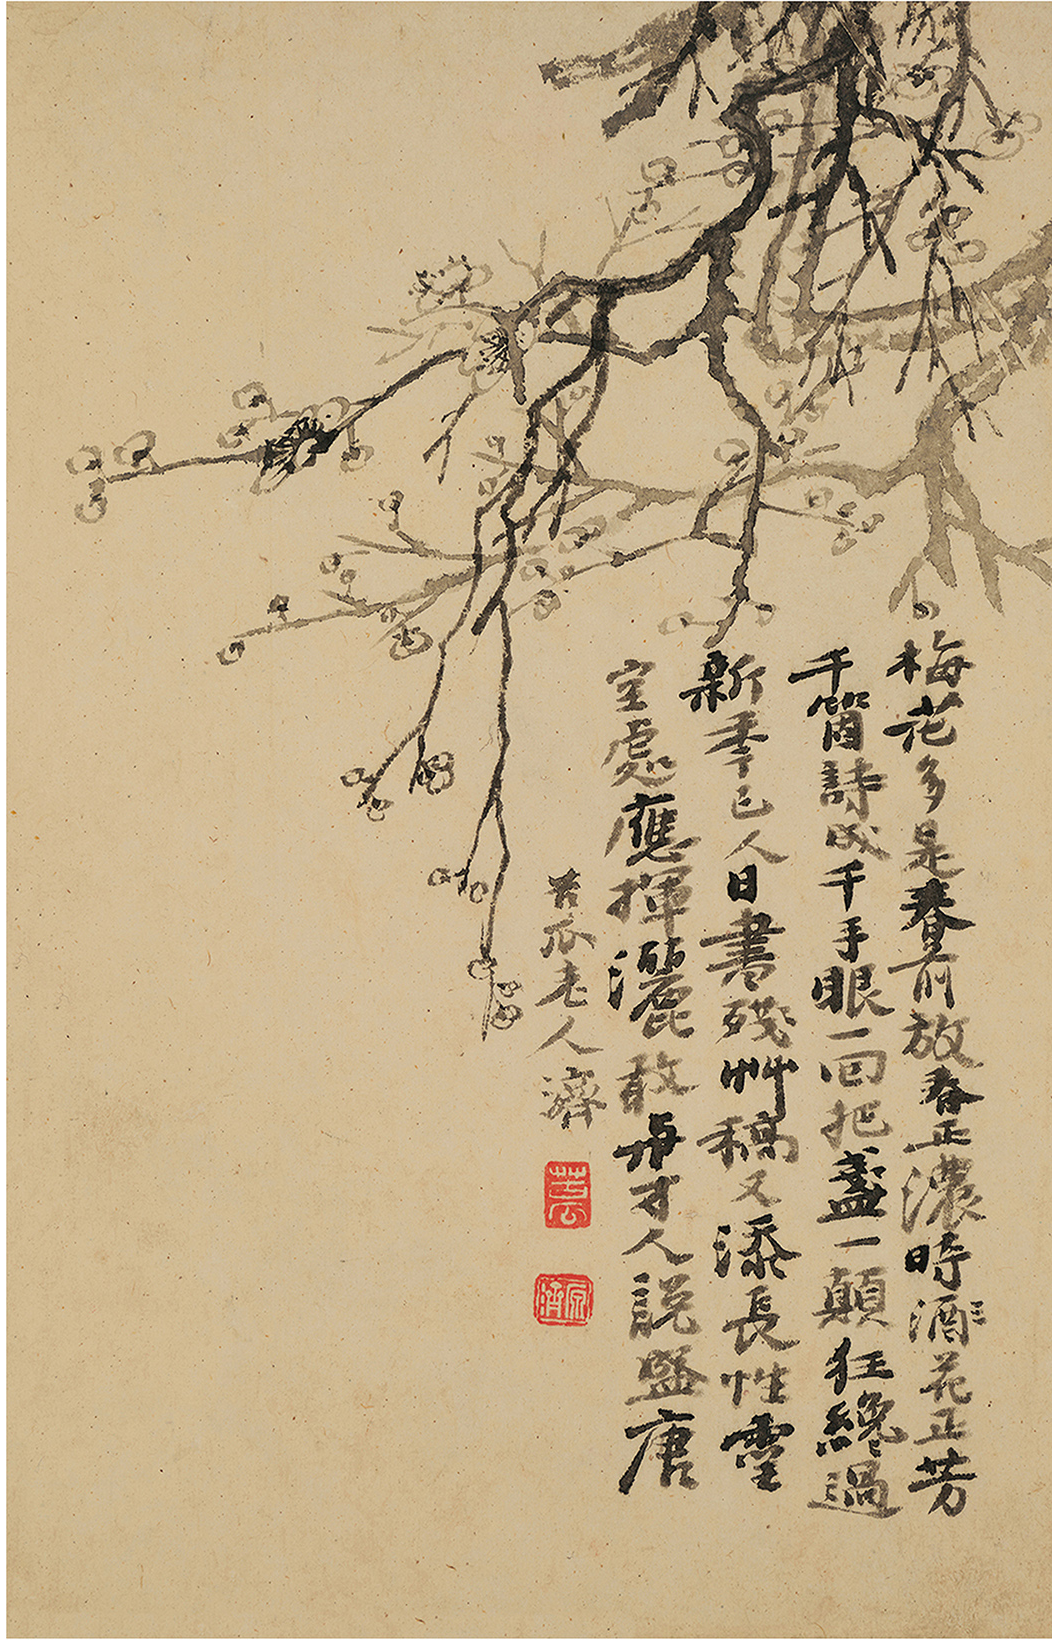 梅花多是春前放春正濃時酒花正芳
千箇詩成千手眼一回把盞一顛狂纔過
新秊已人日書殘艸稿又添長性靈
空處應揮灑敢与才人說盛唐
苦瓜老人濟
原濟